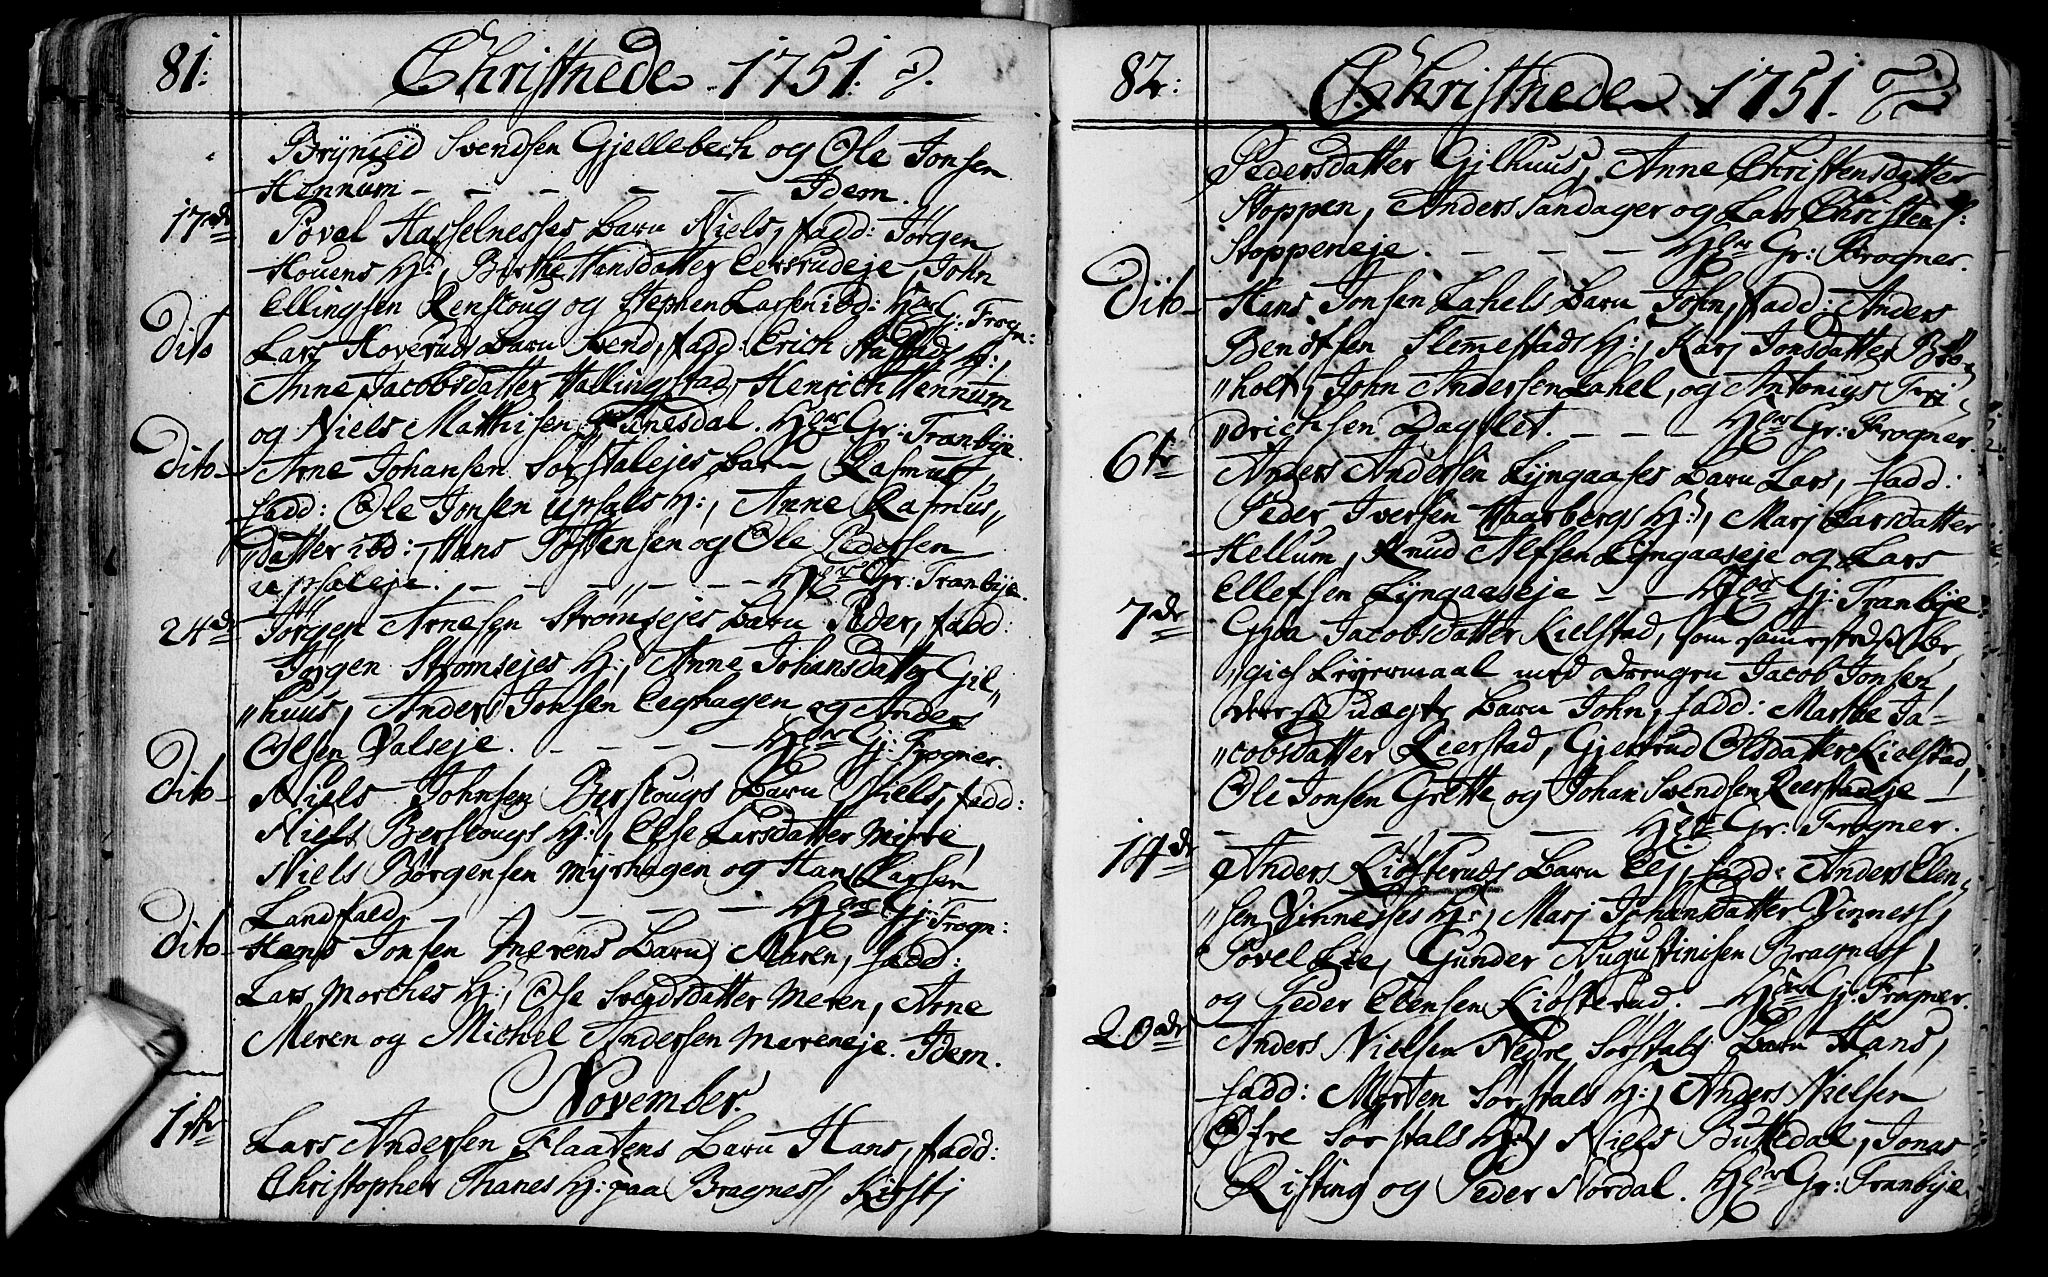 81.
Christnede 1751.
Brynild Svendsen Gjellebech og Ole Jonsen
Hennum - - - - - Idem.
17de Povel Hasselnesses barn Niels, fadd: Jörgen
Houens H:, Birthe Hansdatter Eersrudeje, John
Ellingsen Renskoug og Stephen Larsen ibd: H: Gr: Frogn:
Dito Lars Hoverüds barn Svend, fadd: Erich Stastads H:,
Anne Jacobsdatter Hallingstad, Henrich Hennum
og Niels Matthisen Tunesdal. Her Gr: Tranbye.
Dito Arne Johansen Sörstalejes barn Rasmus,
fadd: Ole Jonsen upsals H:, Anne Rasmus„
„datter ibd:, Hans Tostensen og Ole Pedersen
upsaleje. - - - - - Her Gr: Tranbye.
24de Jörgen Arnesen Strømsejes barn Peder, fadd:
Jørgen Strømsejes H:, Anne Johansdatter Gil„
„huus, Anders Jonsen Eeghagen og Anders
Olsen Valseje. - - - - Her Gj: Frogner.
Dito Niels Johnsen Berskougs barn Niels, fadd:
Niels Berskougs H:, Else Larsdatter Myre,
Niels Børgensen Myrhagen og Hans Larsen
Landfald, - - - - Her Gj: Frogn:
Dito Hans Jonsen Merens barn Maren, fadd:
Lars Morches H:, Ose Svendsdatter Meren, Arne
Meren og Michel Andersen Mereneje. Idem.
November.
1ste Lars Andersen Flaatens barn Hans, fadd:
Christopher Thanes H: paa Bragness, Kirstj
82:
Christnede 1751.
Pedersdatter Gilhuus, Anne Christensdatter
Stoppen, Anders Sandager og Lars Christens:
Stoppeneje. - - - Her Gr: Frogner.
Dito Hans Jonsen Lahels barn John, fadd: Anders
Bendtsen Slemestads H:, Karj Jonsdatter Bho„
„holt, John Andersen Lahel, og Antonius Fri„
„drichsen Dagslet. - - - Her Gr: Frogner.
6te Anders Andersen Lyngaases barn Lars, fadd:
Peder Iversen Haarbergs H:, Marj Larsdatter
Hellum, Knud Alfsen Lyngaaseje og Lars
Ellefsen Lyngaaseje - - Her Gj: Tranbye
7de Gyda Jacobsdatter Kielstad, som samestedss be„
„gich Leyermaal med drengen Jacob Jonsen,
deress uægte barn John, fadd: Marthe Ja-
„cobsdatter Kierstad, Gjertrud Olsdatter Kielstad,
Ole Jonsen Grette og Johan Svendsen Reerstadeje -
- - - - - Her Gr: Frogner.
14de Anders Kiøsteruds barn Elj, fadd: Anders Elen„
„sen Vinnesses H:, Marj Johansdatter Vinness,
Povel Lie, Gunder Augustinisen Bragness,
og Peder Elensen Kiøsterud. - Her Gj: Frogner.
20de Anders Nielsen Nedre Sørstals barn Hans,
fadd: Morten Sørstals H:, Anders Nielsen
Øfre Sørstals H:, Niels Buttedal, Jonas
Kisting og Peder Nordal. Her Gr: Tranbye